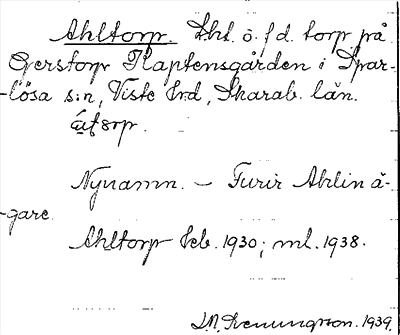 Ahltorp. Lht. o. f.d. torp på
Gerstorp Kaptensgården i Spar-
-lösa s:n, Viste hrd, Skarab. län.
Nynamn. – Furir Ahlin ä-
-gare.
Ahltorp Leb. 1930; ml. 1938.
1939.